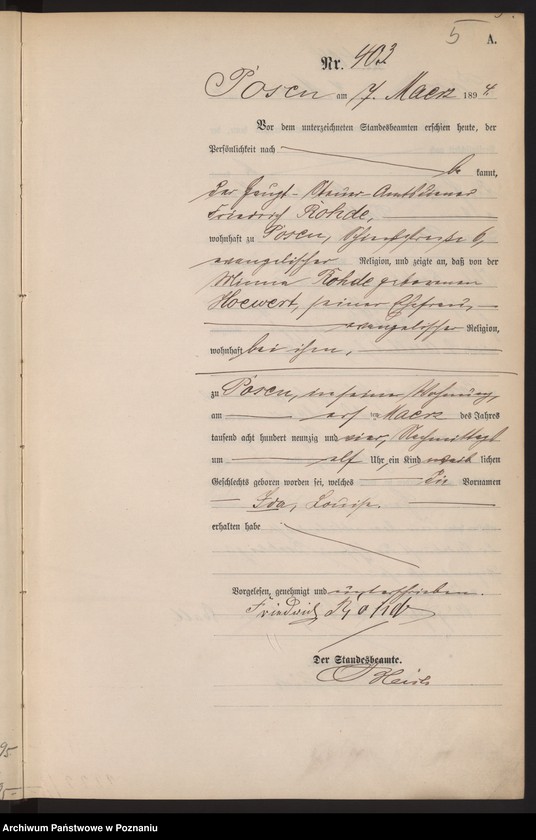 5
A.
Nr. 403
Posen am 7. Maerz 1894.
Vor dem unterzeichneten Standesbeamten erschien heute, der
Persönlichkeit nach
be kannt,
der Haupt-Steuer-Amtsdiener
Friedrich Rohde,
wohnhaft zu Posen, 6,
evangelischer Religion, und zeigte an, daß von der
Minna Rohde geborenen
Hoewert, seiner Ehefrau,
evangelischer Religion,
wohnhaft bei ihm,
zu Posen, in seiner Wohnung,
am ten Maerz des Jahres
tausend acht hundert neunzig und vier, Nachmittags
um elf Uhr ein Kind weib lichen
Geschlechts geboren worden sei, welches die Vornamen
Ida, Louise.
erhalten habe
Vorgelesen, genehmigt und unterschrieben.
Friedrich Rohde
Der Standesbeamte.
95
Archiwum Państwowe w Poznaniu